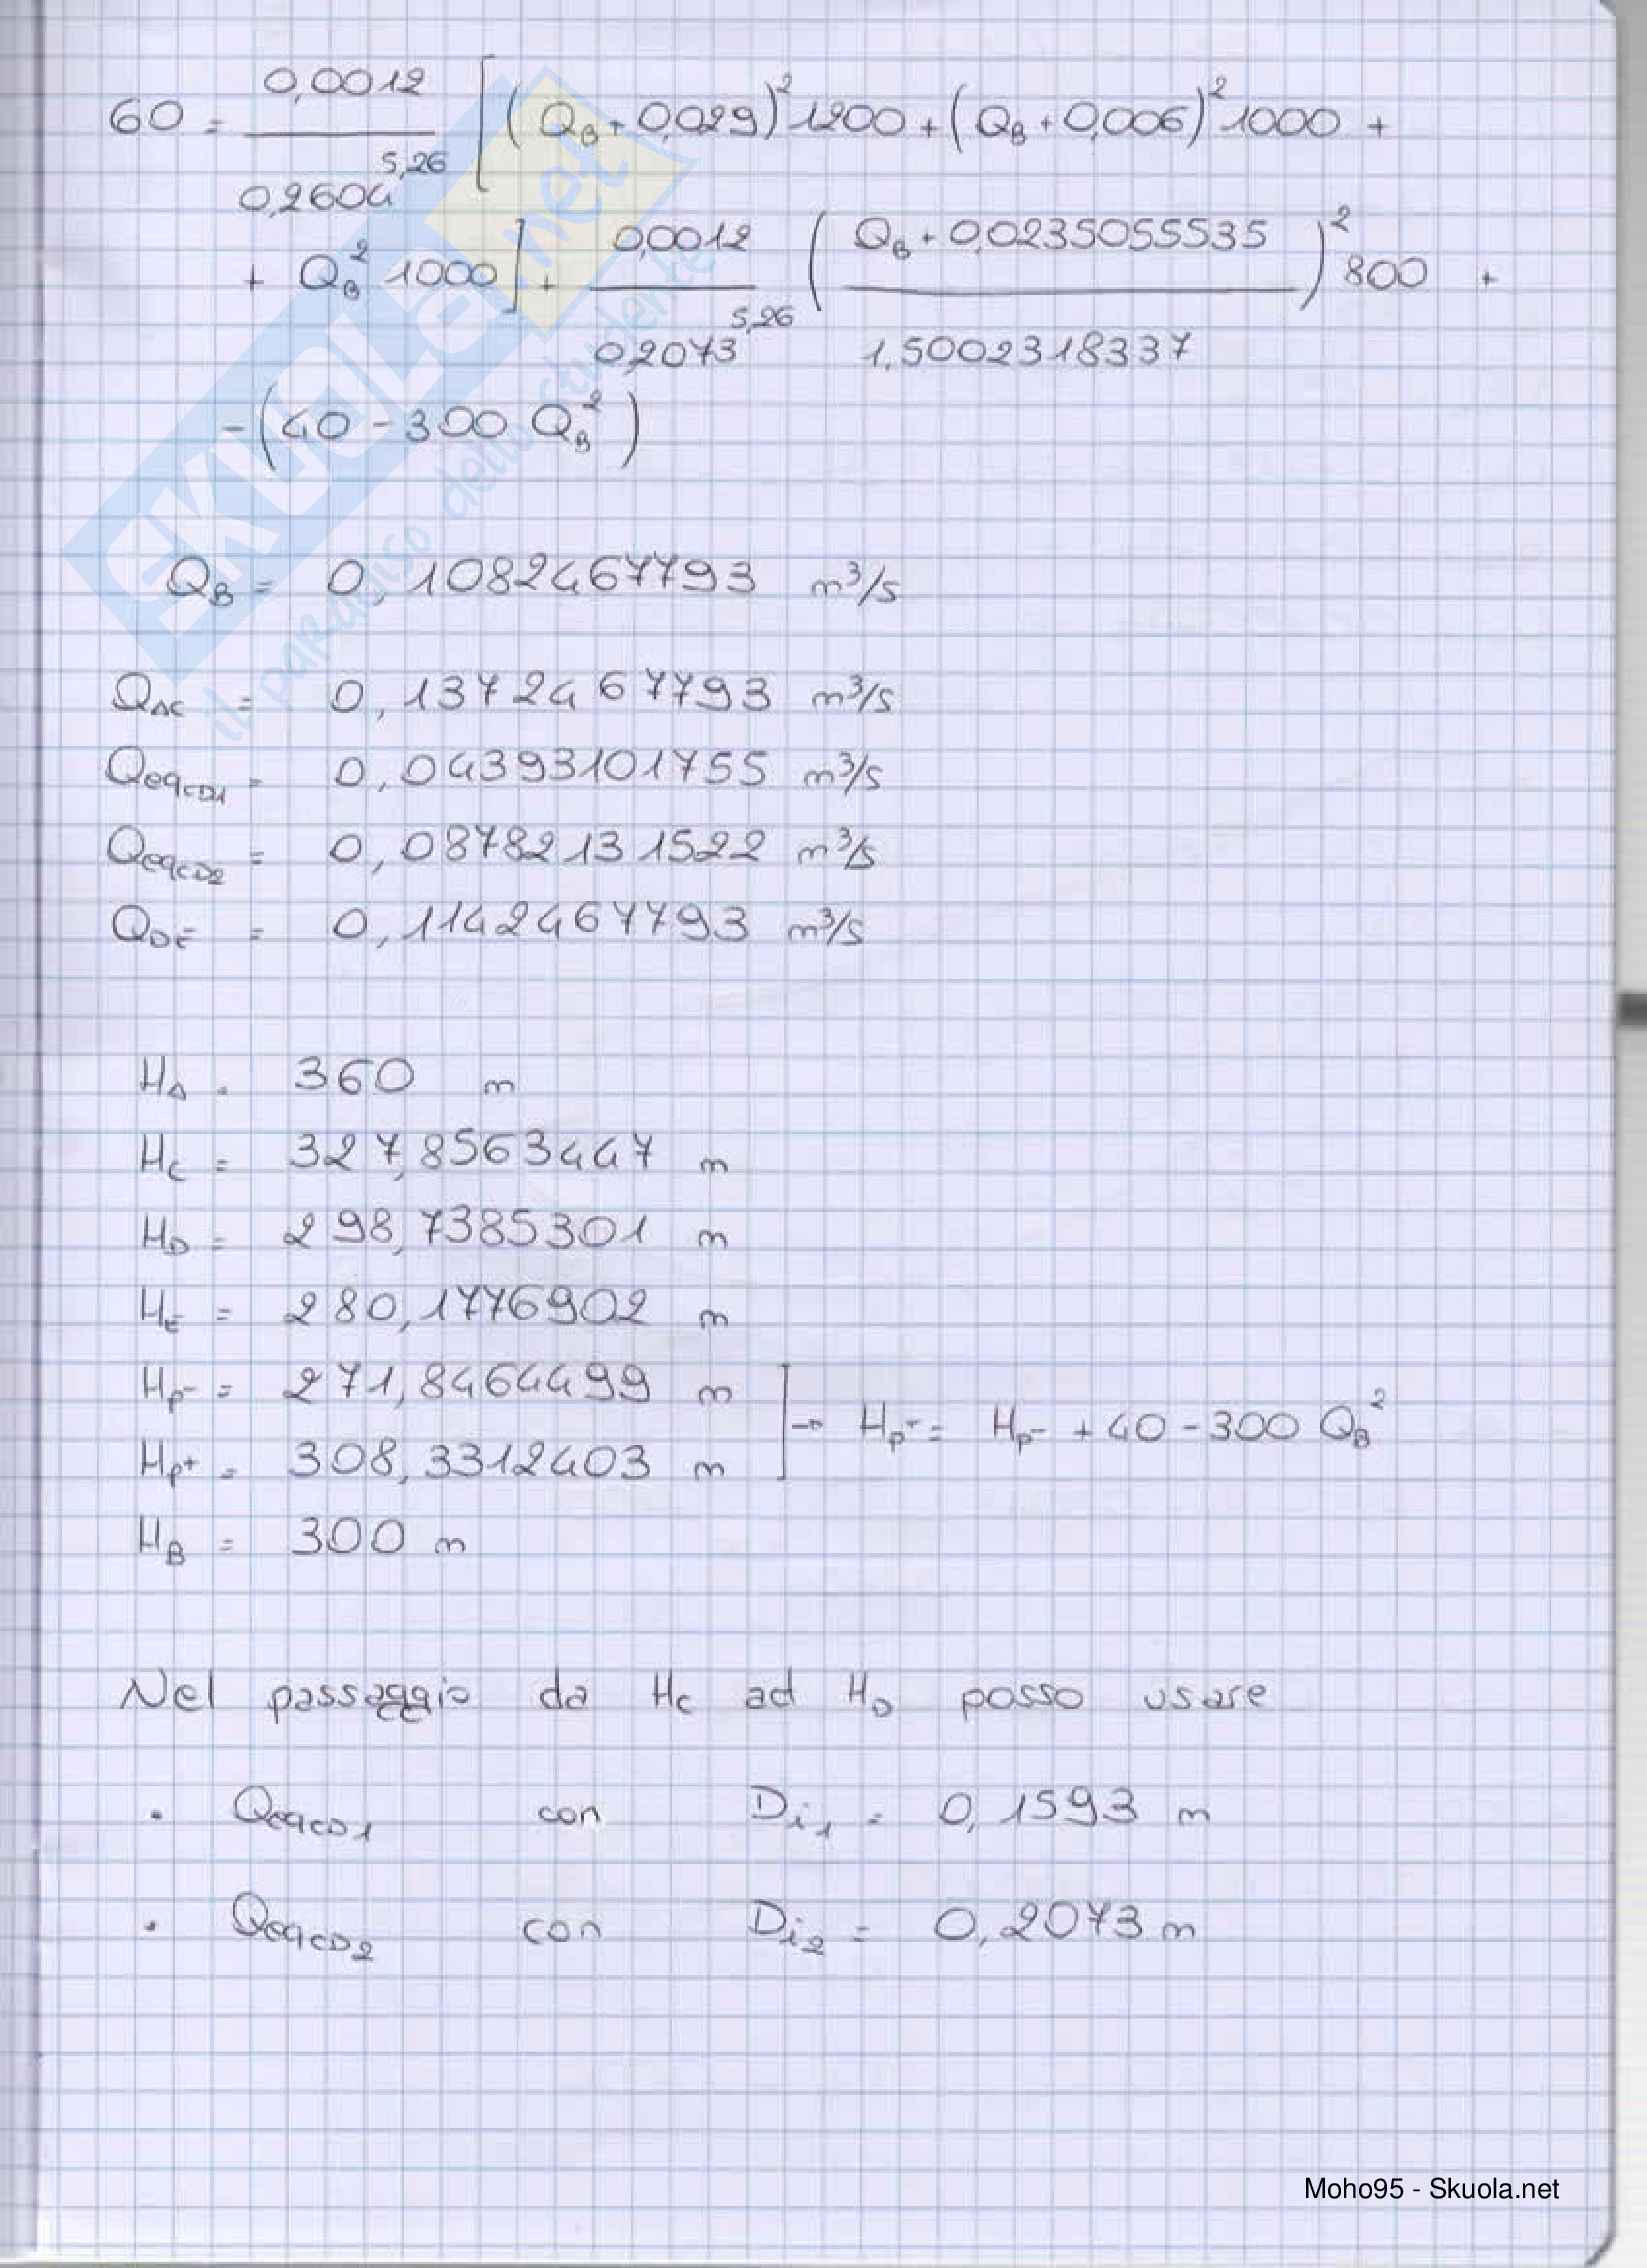 60 = 0,0012 / 0,2604^5,26 [ (Q_B + 0,029)² 1200 + (Q_B + 0,006)² 1000 +
+ Q_B² 1000 ] + 0,0012 / 0,2073^5,26 ( Q_B + 0,0235055535 / 1,5002318337 )² 800 +
- (40 - 300 Q_B²)
Q_B = 0,1082467793 m³/s
Q_AC = 0,1372467793 m³/s
Qeq_CD1 = 0,04393101755 m³/s
Qeq_CD2 = 0,08782131522 m³/s
Q_DE = 0,1142467793 m³/s
H_A = 360 m
H_C = 327,8563447 m
H_D = 298,7385301 m
H_E = 280,1776902 m
H_P- = 271,8464499 m
H_P+ = 308,3312403 m
] → H_P+ = H_P- + 40 - 300 Q_B²
H_B = 300 m
Nel passaggio da H_C ad H_D posso usare
· Qeq_CD1 con D_i1 = 0,1593 m
· Qeq_CD2 con D_i2 = 0,2073 m
SKUOLA.net
il paradiso dello studente
Moho95 - Skuola.net